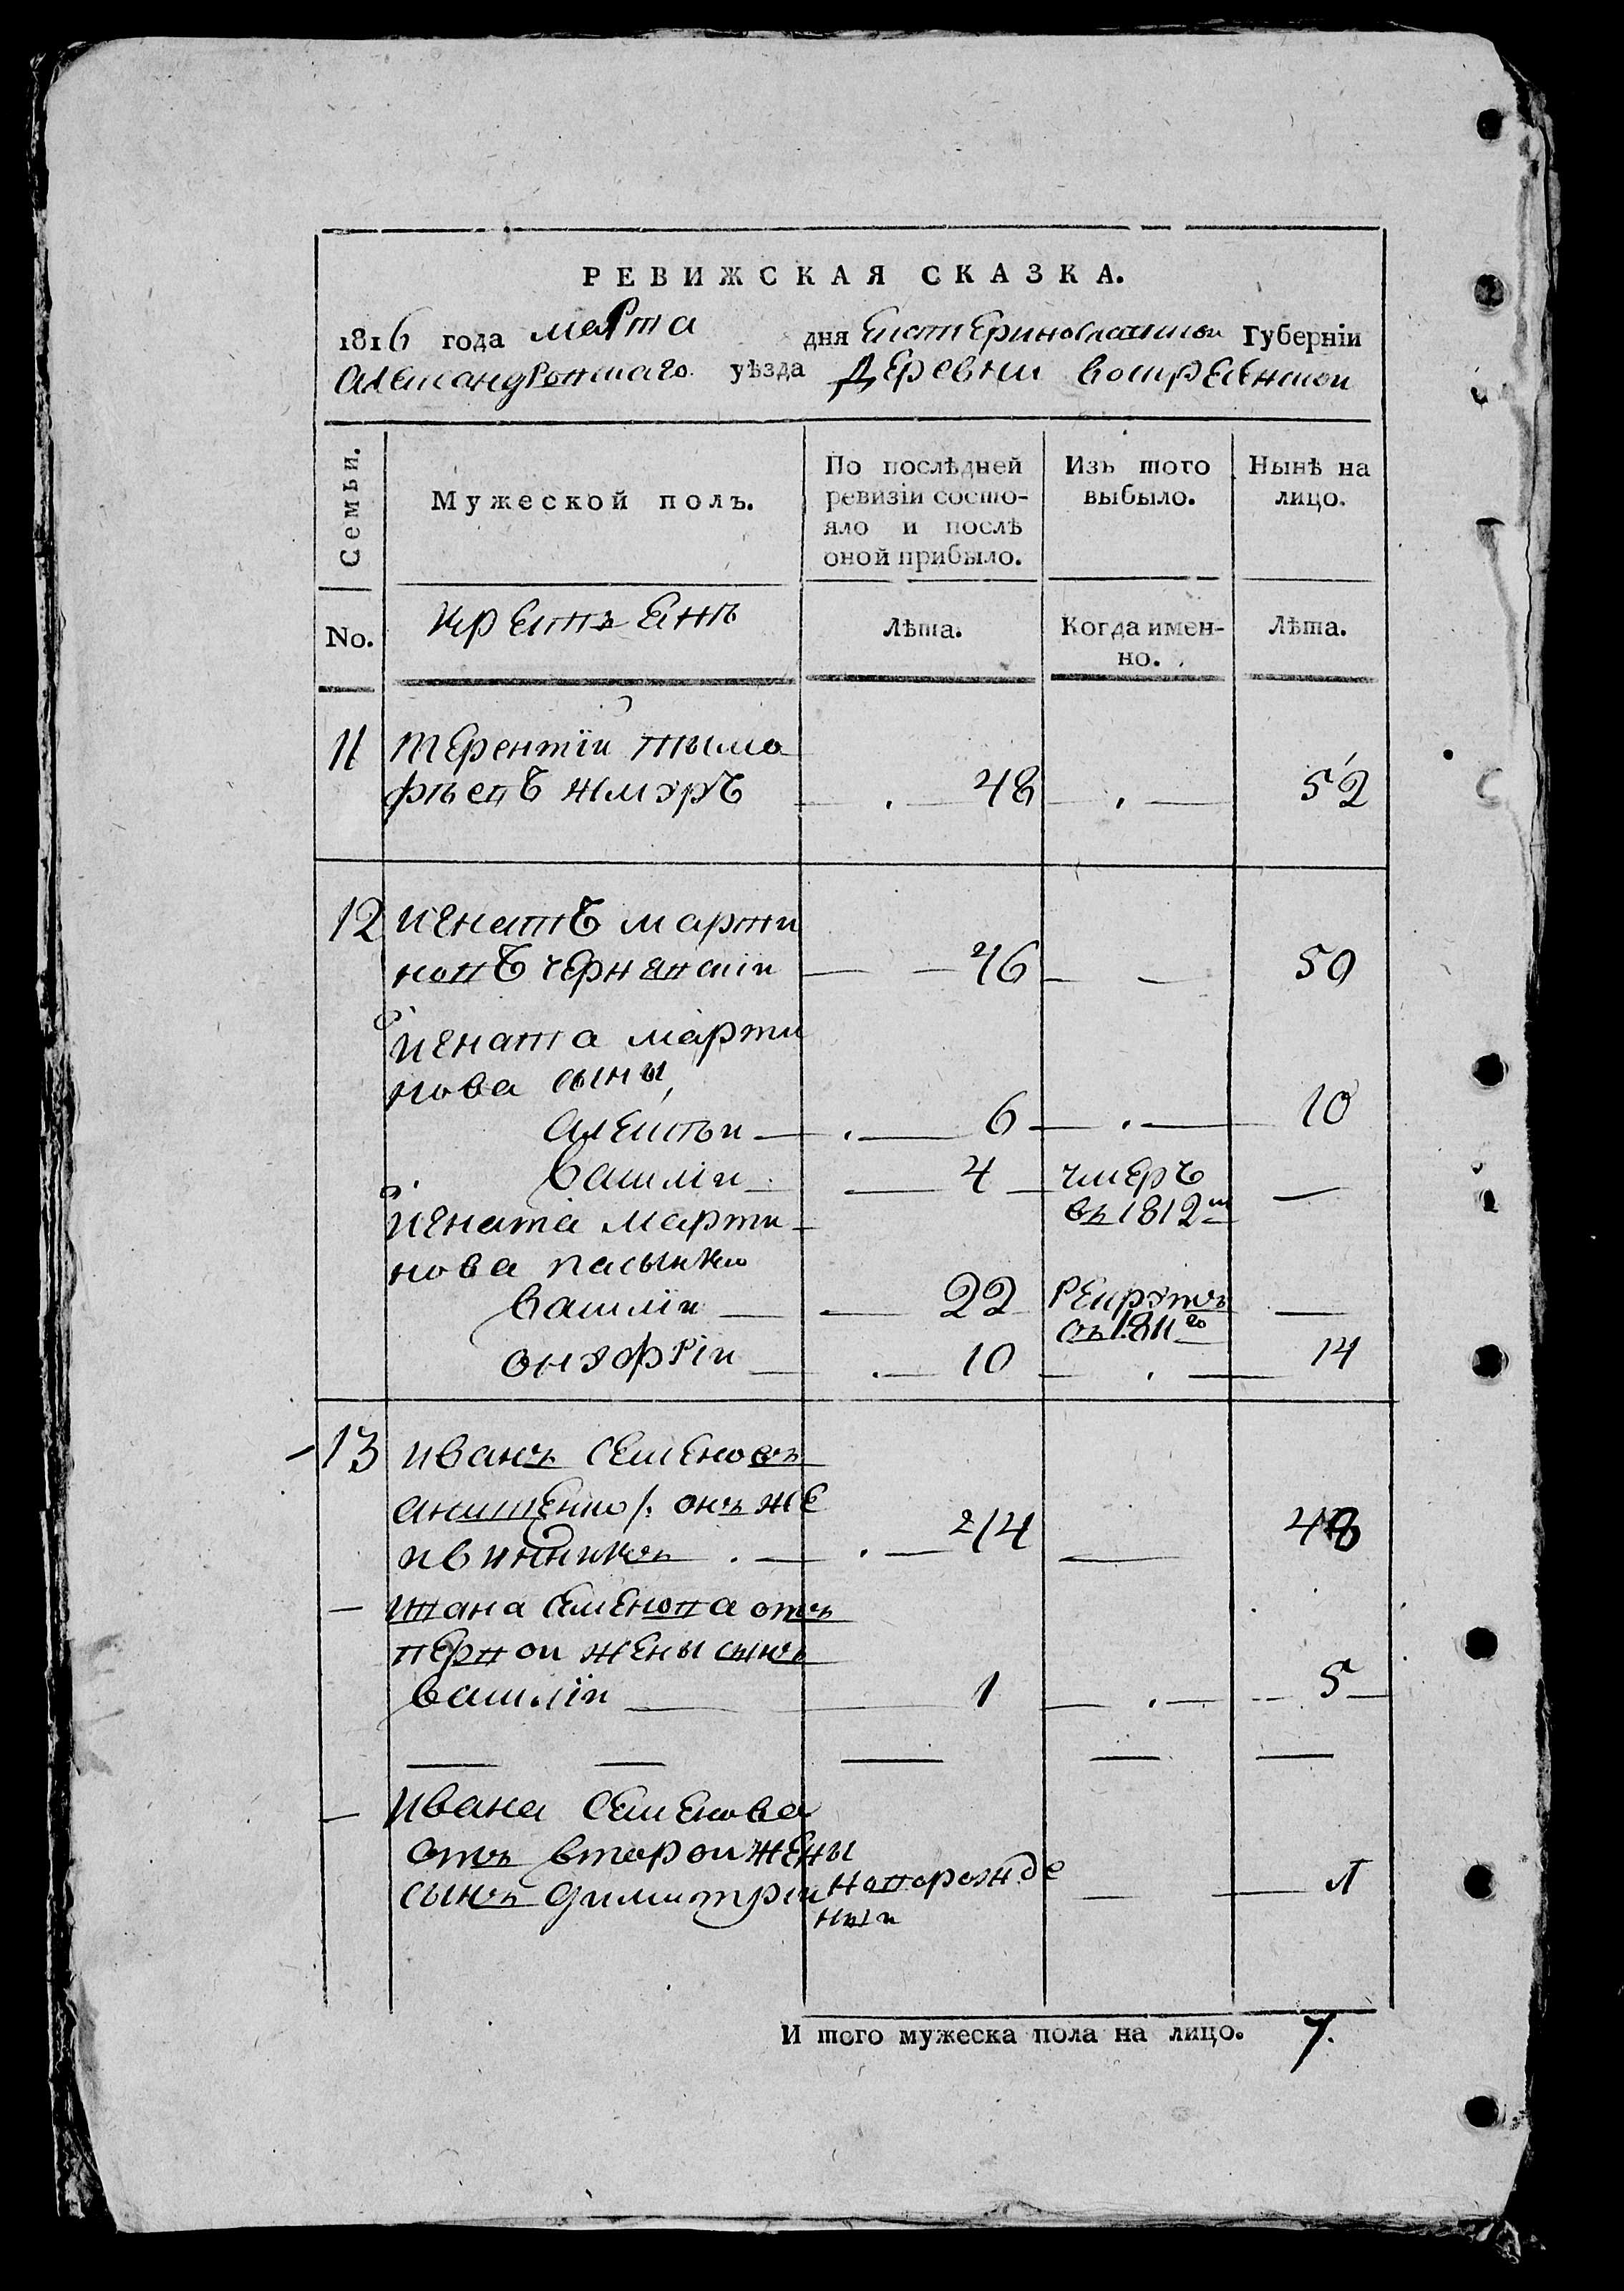 РЕВИЖСКАЯ СКАЗКА.
1816 года марта дня Екатеринославской Губерніи
Александровскаго уѣзда Деревни воскресенской
Семьи.
Мужеской полъ.
По послѣдней
ревизіи состо-
яло и послѣ
оной прибыло.
Изъ того
выбыло.
Нынѣ на
лицо.
No.
Лѣта.
Когда имен-
но.
Лѣта.
11 терентіи тимо
фѣевъ жмуръ 48 52
12 игнатъ марти
новъ чернявскіи 46 50
игната марти
нова сыны
алексѣи 6 10
василіи 4 умеръ
въ 1812м
игната марти
нова пасынки
василіи 22 рекрутъ
съ 1811го
онуфріи 10 14
13 иванъ семеновъ
онъ же
44 48
ивана семенова отъ
первои жены сынъ
василіи 1 5
ивана семенова
отъ второи жены
сынъ димитріи новорожде
ныи
И того мужеска пола на лицо. 7.